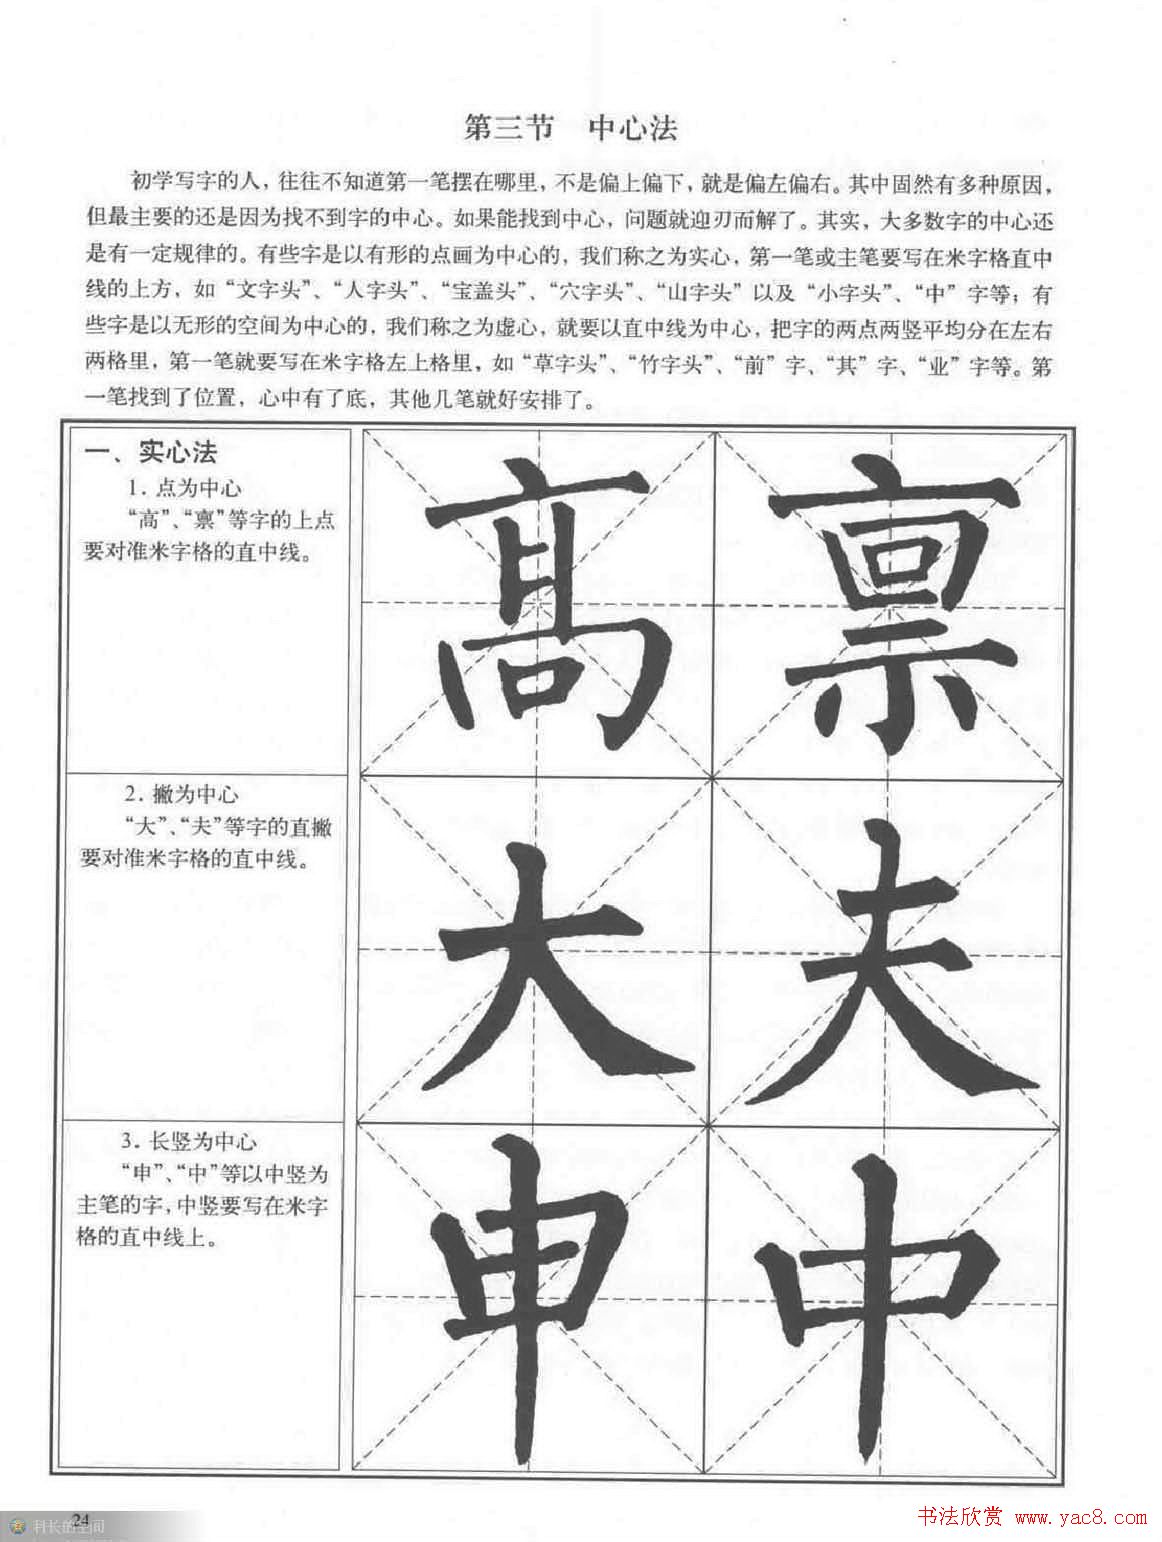 第三节 中心法
初学写字的人，往往不知道第一笔摆在哪里，不是偏上偏下，就是偏左偏右。其中固然有多种原因，
但最主要的还是因为找不到字的中心。如果能找到中心，问题就迎刃而解了。其实，大多数字的中心还
是有一定规律的。有些字是以有形的点画为中心的，我们称之为实心，第一笔或主笔要写在米字格直中
线的上方，如“文字头”、“人字头”、“宝盖头”、“穴字头”、“山字头”以及“小字头”、“中”字等；有
些字是以无形的空间为中心的，我们称之为虚心，就要以直中线为中心，把字的两点两竖平均分在左右
两格里，第一笔就要写在米字格左上格里，如“草字头”、“竹字头”、“前”字、“其”字、“业”字等。第
一笔找到了位置，心中有了底，其他几笔就好安排了。
一、实心法
1. 点为中心
“高”、“禀”等字的上点
要对准米字格的直中线。
髙 禀
2. 撇为中心
“大”、“夫”等字的直撇
要对准米字格的直中线。
大 夫
3. 长竖为中心
“申”、“中”等以中竖为
主笔的字，中竖要写在米字
格的直中线上。
申 中
24
科长的空间
书法欣赏 www.yac8.com